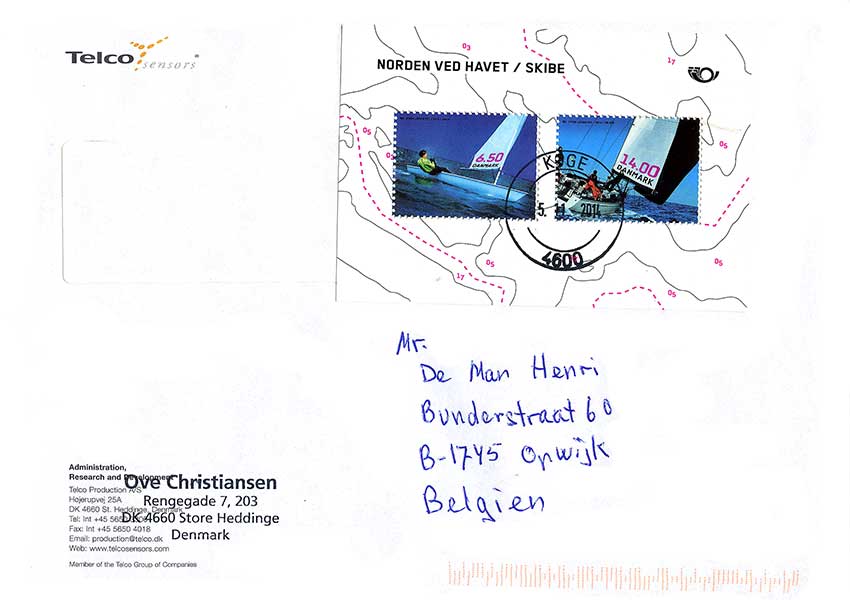 Telco sensors
NORDEN VED HAVET / SKIBE
03
17
05
05
6.50
DANMARK
14.00
DANMARK
KØGE
5. 11 2014
4600
05
05
05
17
05
05
Mr.
De Man Henri
Bunderstraat 60
B-1745 Opwijk
Belgien
Administration,
Research and Development
Telco Production A/S
Hojerupvej 25A
DK 4660 St. Heddinge, Denmark
Tel: Int +45 56
Fax: Int +45 5650 4018
Email: production@telco.dk
Web: www.telcosensors.com
Member of the Telco Group of Companies
Ove Christiansen
Rengegade 7, 203
DK 4660 Store Heddinge
Denmark